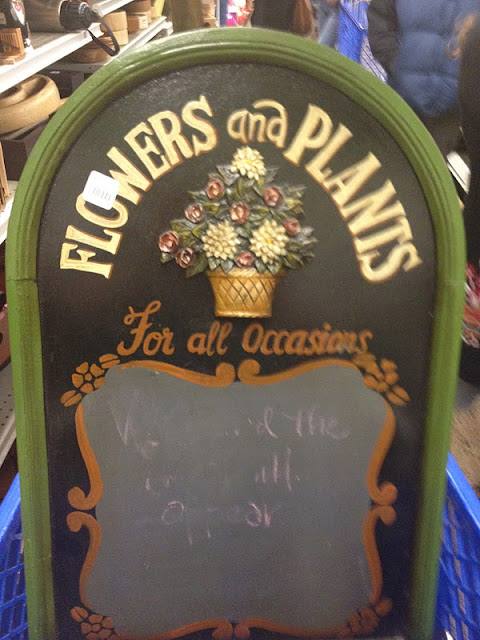 FLOWERS and PLANTS
For all Occasions
the
appear